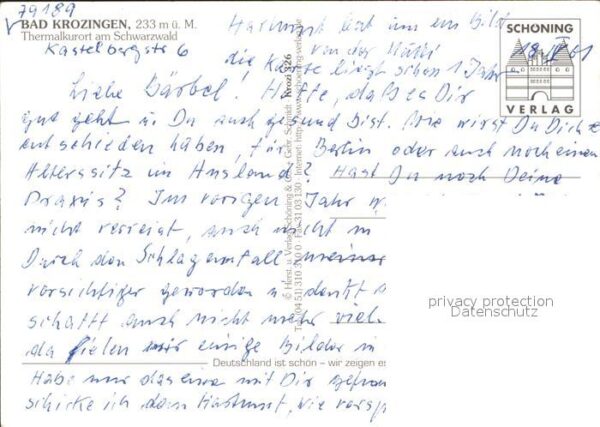 79189
BAD KROZINGEN, 233 m ü. M.
Thermalkurort am Schwarzwald
Kastelbergstr 6
Hartmut hat um ein Bild
von der Mutti
die Karte liegt schon 1 Jahr
SCHÖNING
VERLAG
Liebe Bärbel! Hoffe, daß es Dir
gut geht u Du auch gesund bist. Wie wirst Du Dich
entschieden haben, für Berlin oder auch noch einen
Alterssitz im Ausland? Hast Du noch Deine
Praxis? Im vorigen Jahr
nicht verreist, auch nicht in
Durch den Schlaganfall
vorsichtiger geworden u denkt
schafft auch nicht mehr viel
da fielen mir einige Bilder in
Habe nur das eine mit Dir
schicke ich dem Hartmut, wie
© Herst. u. Verlag Schöning & Co + Gebr. Schmidt
Krozi 326
Tel. (04 51) 310 310 · Fax 31 03 130 · Internet: http://www.schoening-verlag.de
Deutschland ist schön – wir zeigen es
privacy protection
Datenschutz